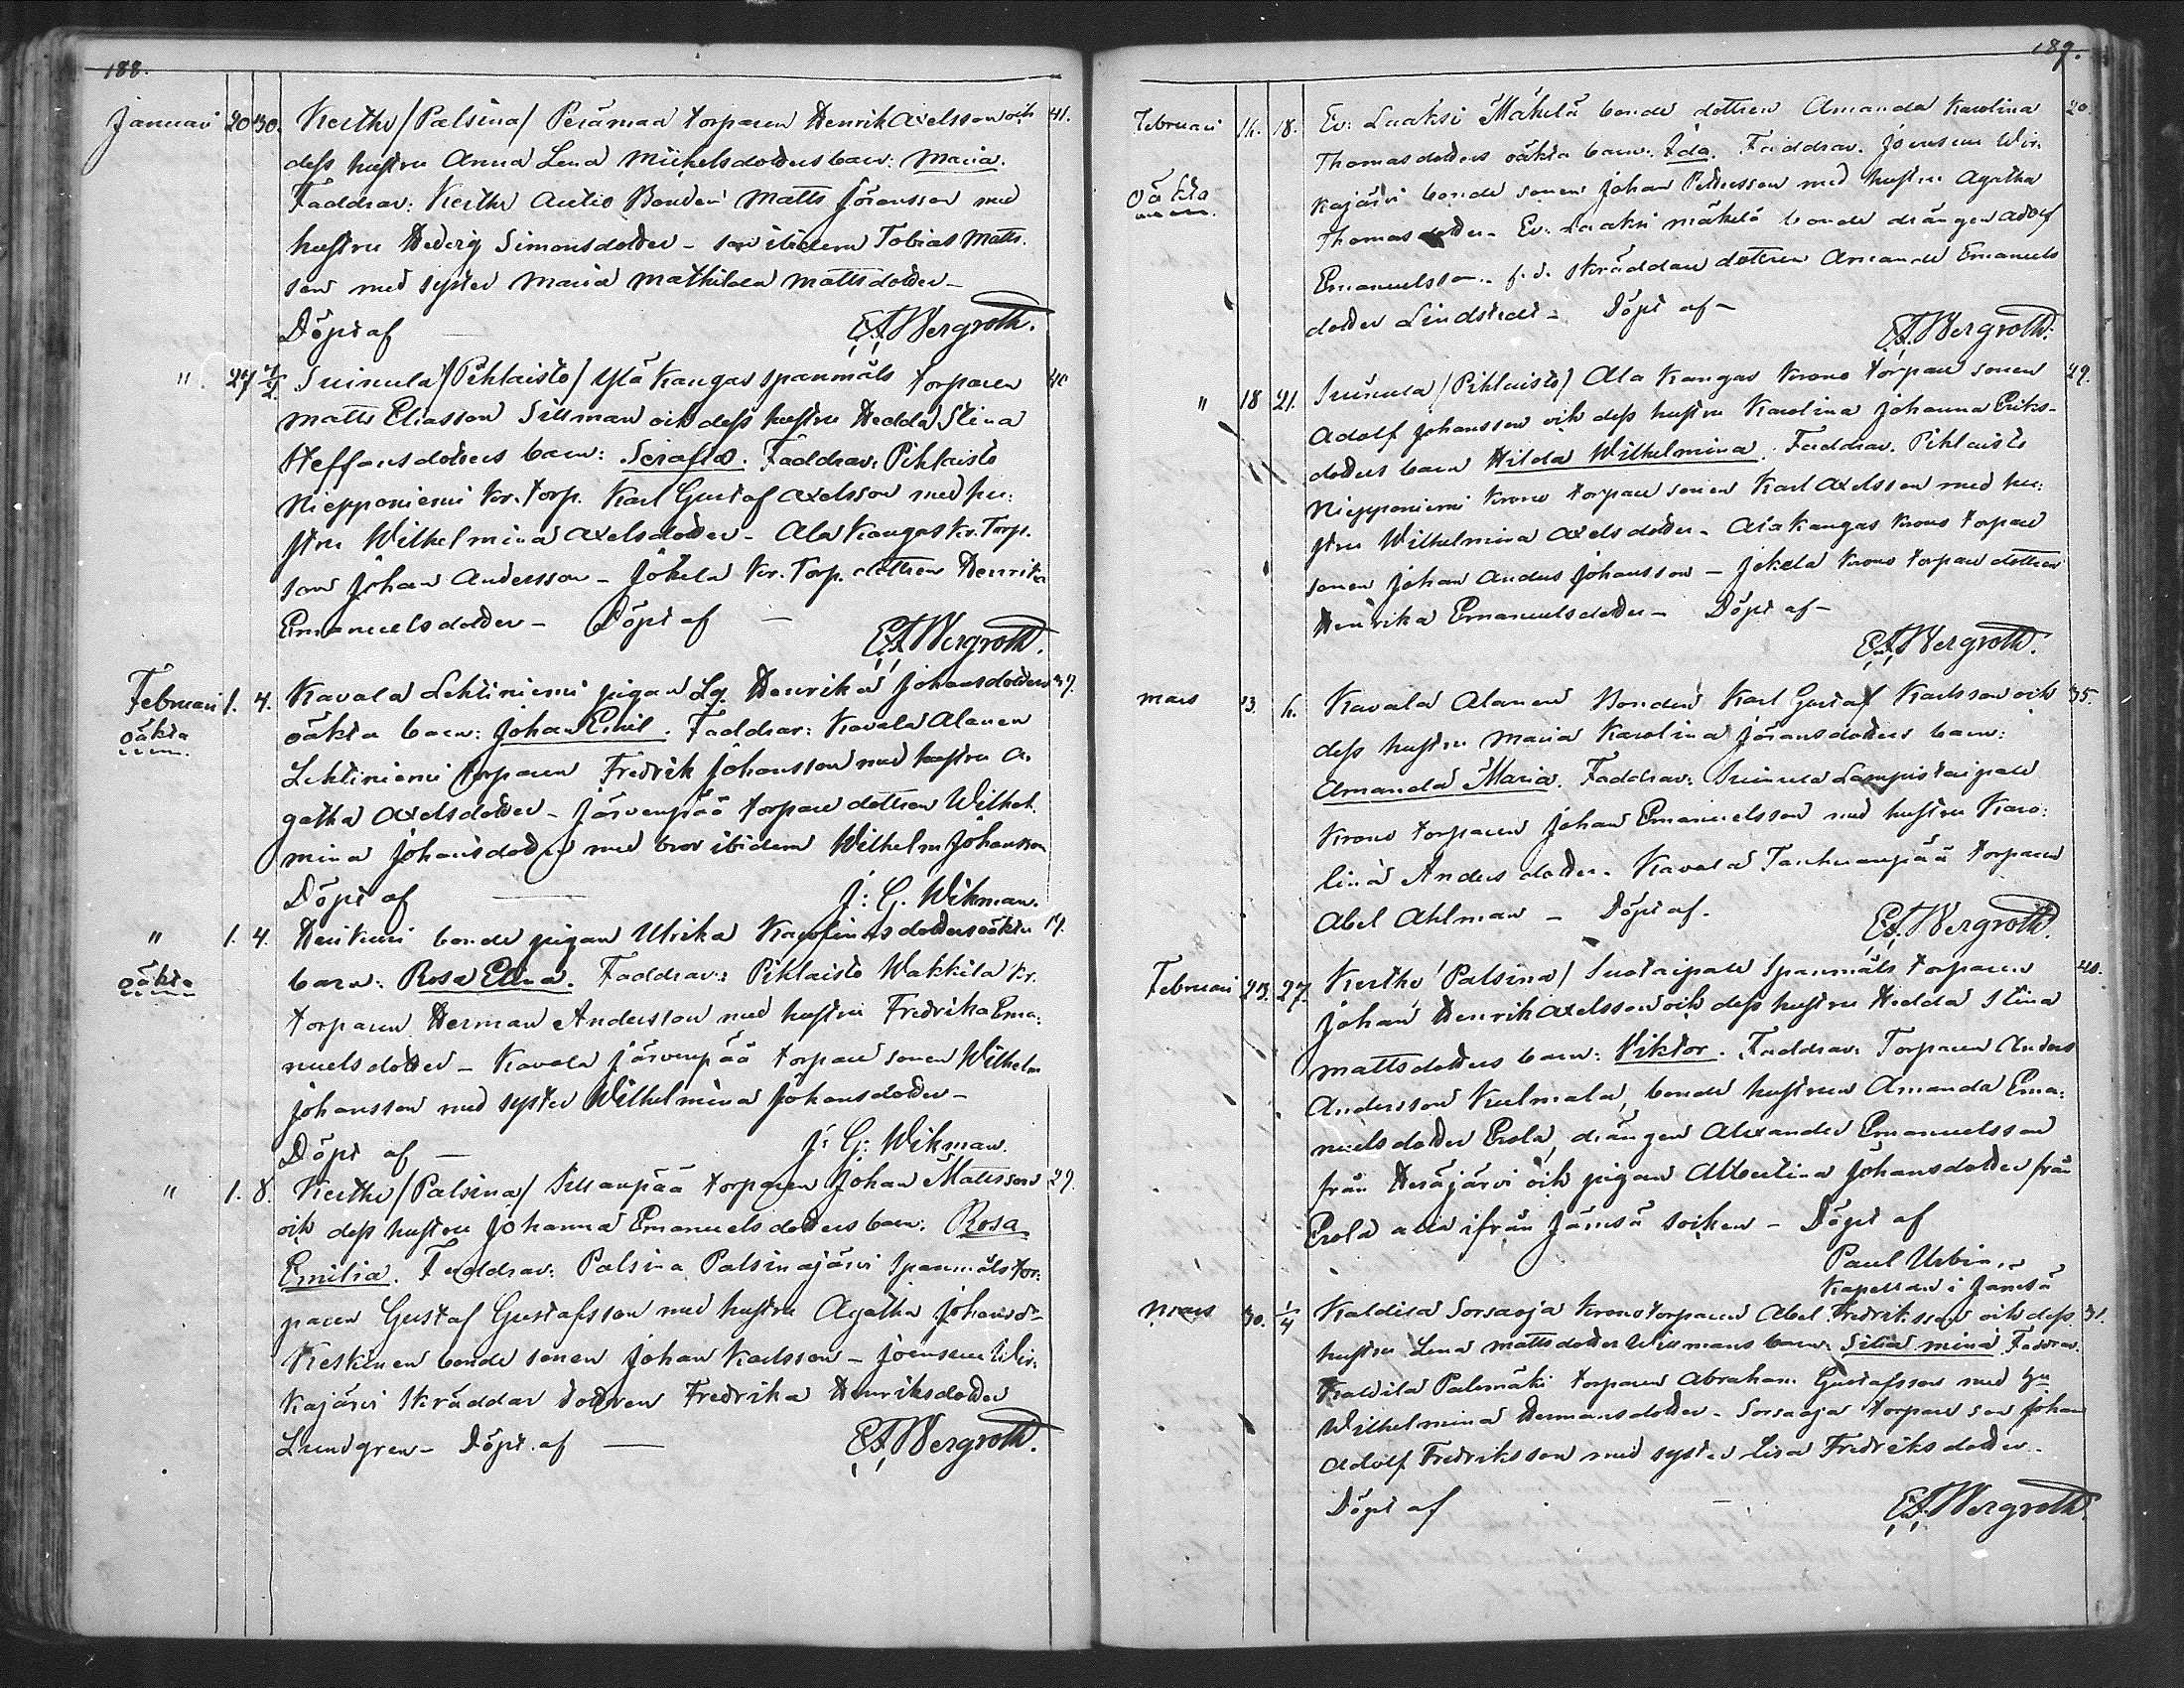 188.
Januari 20 30. Kertke /Palsina/ Perämaa torparen Henrik Axelsson och 41.
dess hustru Anna Lena Mickelsdotters barn: Maria.
Faddrar: Kertke Autio Bonden Matts Jöransson med
hustru Hedvig Simonsdotter - son ibidem Tobias Matts-
son med syster Maria Mathilda Mattsdotter -
Döpt af E.F. Bergroth.
" 27 1/2 Suinula /Pihlaisto/ Ylä Kangas spanmåls torparen 40
Matts Eliasson Sillman och dess hustru Hedda Stina
Steffansdotters barn: Serafia. Faddrar: Pihlaisto
Niepponiemi kr. torp. Karl Gustaf Axelsson med hu-
stru Wilhelmina Axelsdotter - Ala Kangas kr. torp.
son Johan Andersson - Jokela kr. torp. dottren Henrika
Emanuelsdotter - Döpt af -
E.F. Bergroth.
Februari 1. 4. Kavala Lehtiniemi pigan Lg. Henrika Johansdotters 39.
oäkta oäkta barn: Johan Emil. Faddrar: Kavala Alanen
Lehtiniemi torparen Fredrik Johansson med hustru A-
gatha Axelsdotter - Järvenpää torpare dottren Wilhel-
mina Johansdotter med bror ibidem Wilhelm Johansson
Döpt af J: G. Wikman.
" 1. 4. Heikuri bonde pigan Ulrika Karolina dotters oäkta 19.
oäkta barn: Rosa Elina. Faddrar: Pihlaisto Wakkila kr.
torparen Herman Andersson med hustru Fredrika Ema-
nuelsdotter - Kavala Järvenpää torpare sonen Wilhelm
Johansson med syster Wilhelmina Johansdotter -
Döpt af - J: G: Wikman.
" 1. 8. Kertke /Palsina/ Sillanpää torparen Johan Mattsson 29.
och dess hustru Johanna Emanuelsdotters barn: Rosa
Emilia. Faddrar: Palsina Palsinajärvi spanmåls tor-
paren Gustaf Gustafsson med hustru Agatha Johansdr
Keskinen bonde sonen Johan Karlsson - Joensuu Wir-
kajärvi skräddar dottren Fredrika Henriksdotter
Lundgren - Döpt af - E.F. Bergroth.
189.
Februari 14. 18. Ev: Laaksi Mäkelä bonde dottren Amanda Karolina 20.
Thomasdotters oäkta barn: Ida. Faddrar: Joensuu Wir-
oäkta kajärvi bonde sonen Johan Pettersson med hustru Agatha
Thomasdotter - Ev: Laaksi Mäkelä bonde drängen Adolf
Emanuelsson - f.d. skräddare dottren Amanda Emanuels
dotter Lindstedt - Döpt af -
E.F. Bergroth.
" 18 21. Suinula /Pihlaisto/ Ala Kangas krono torpare sonen 29.
Adolf Johansson och dess hustru Karolina Johanna Eriks-
dotters barn Hilda Wilhelmina. Faddrar. Pihlaisto
Niepponiemi krono torpare sonen Karl Axelsson med hu-
stru Wilhelmina Axelsdotter - Alakangas krono torpare
sonen Johan Anders Johansson - Jokela krono torpare dottren
Henrika Emanuelsdotter - Döpt af -
E.F. Bergroth.
Mars 3. 4. Kavala Alanen Bonden Karl Gustaf Karlsson och 35.
dess hustru Maria Karolina Jöransdotters barn:
Amanda Maria. Faddrar: Suinula Lampistaipale
krono torparen Johan Emanuelsson med hustru Karo-
lina Anders dotter. Kavala torparen
Abel Ahlman - Döpt af -
E.F. Bergroth.
Februari 23. 27. Kertke /Palsina/ Suotaipale spanmåls torparen 40.
Johan Henrik Axelsson och dess hustru Hedda Stina
Mattsdotters barn: Viktor. Faddrar: Torparen Anders
Andersson Kulmala, bonde hustrun Amanda Ema-
nuelsdotter Erola, drängen Alexander Emanuelsson
från Heräjärvi och pigan Albertina Johansdotter från
Erola alla ifrån Jämsä socken - Döpt af
Paul Urbin.
Kapellan i Jämsä
Mars 30. 1/4 Kaldila Sorsaoja kronotorparen Abel Fredriksson och dess 31.
hustru Lena Mattsdotter Willmans barn: Silia Mina Faddrar.
Kaldila Palomäki torparen Abraham Gustafsson med hu
Wilhelmina Hermansdotter - Sorsaoja torpare son Johan
Adolf Fredriksson med syster Lisa Fredriksdotter.
Döpt af - E.F. Bergroth.